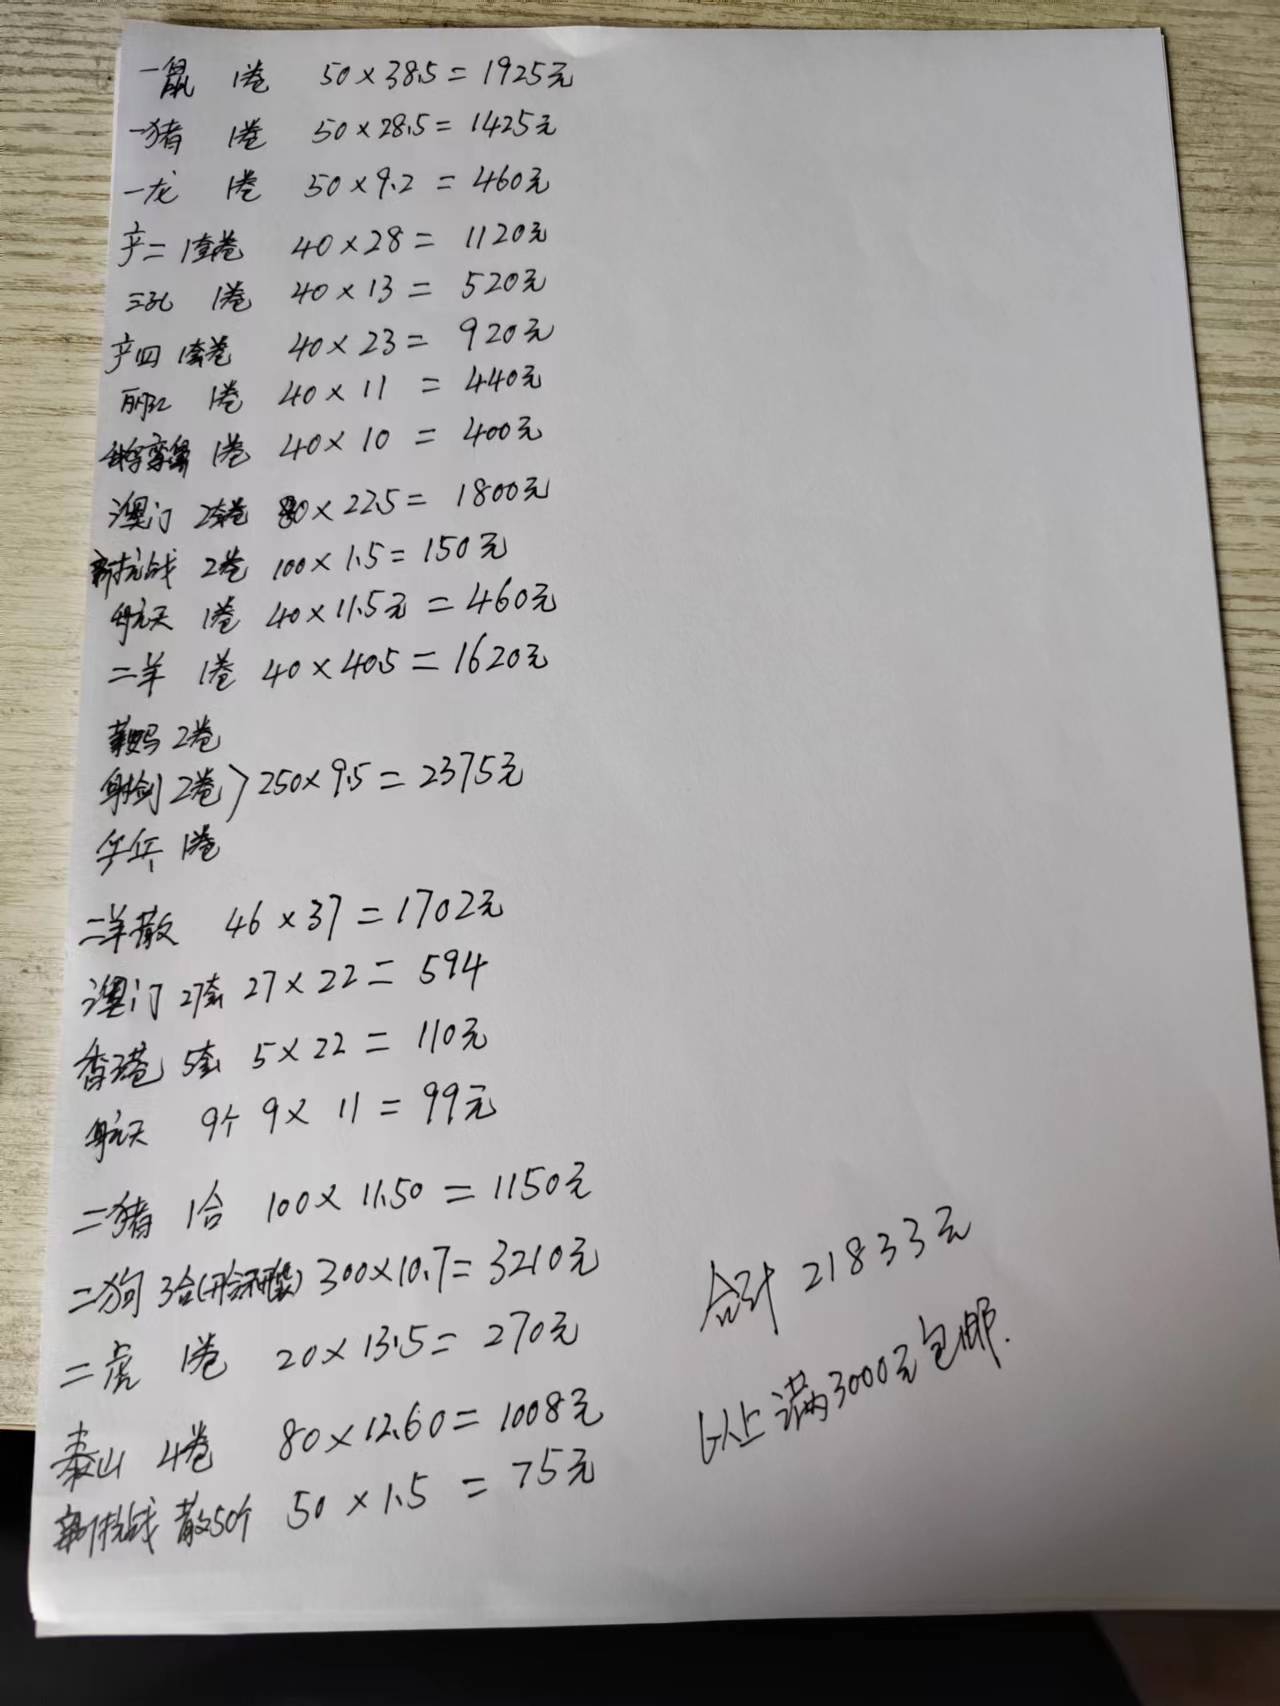 一鼠 1卷 50×38.5=1925元
一猪 1卷 50×28.5=1425元
一龙 1卷 50×9.2=460元
产二 1套卷 40×28=1120元
三孔 1卷 40×13=520元
产四 1套卷 40×23=920元
丽江 1卷 40×11=440元
1卷 40×10=400元
澳门 2套卷 80×22.5=1800元
新抗战 2卷 100×1.5=150元
航天 1卷 40×11.5元=460元
二羊 1卷 40×40.5=1620元
2卷
射剑 2卷 〉250×9.5=2375元
乒乓 1卷
二羊散 46×37=1702元
澳门 27套 27×22=594
香港 5套 5×22=110元
航天 9个 9×11=99元
二猪 1合 100×11.50=1150元
二狗 3合(开合不开袋) 300×10.7=3210元
二虎 1卷 20×13.5=270元
泰山 4卷 80×12.60=1008元
新抗战 散50个 50×1.5=75元
合计 21833元
以上满3000元包邮.